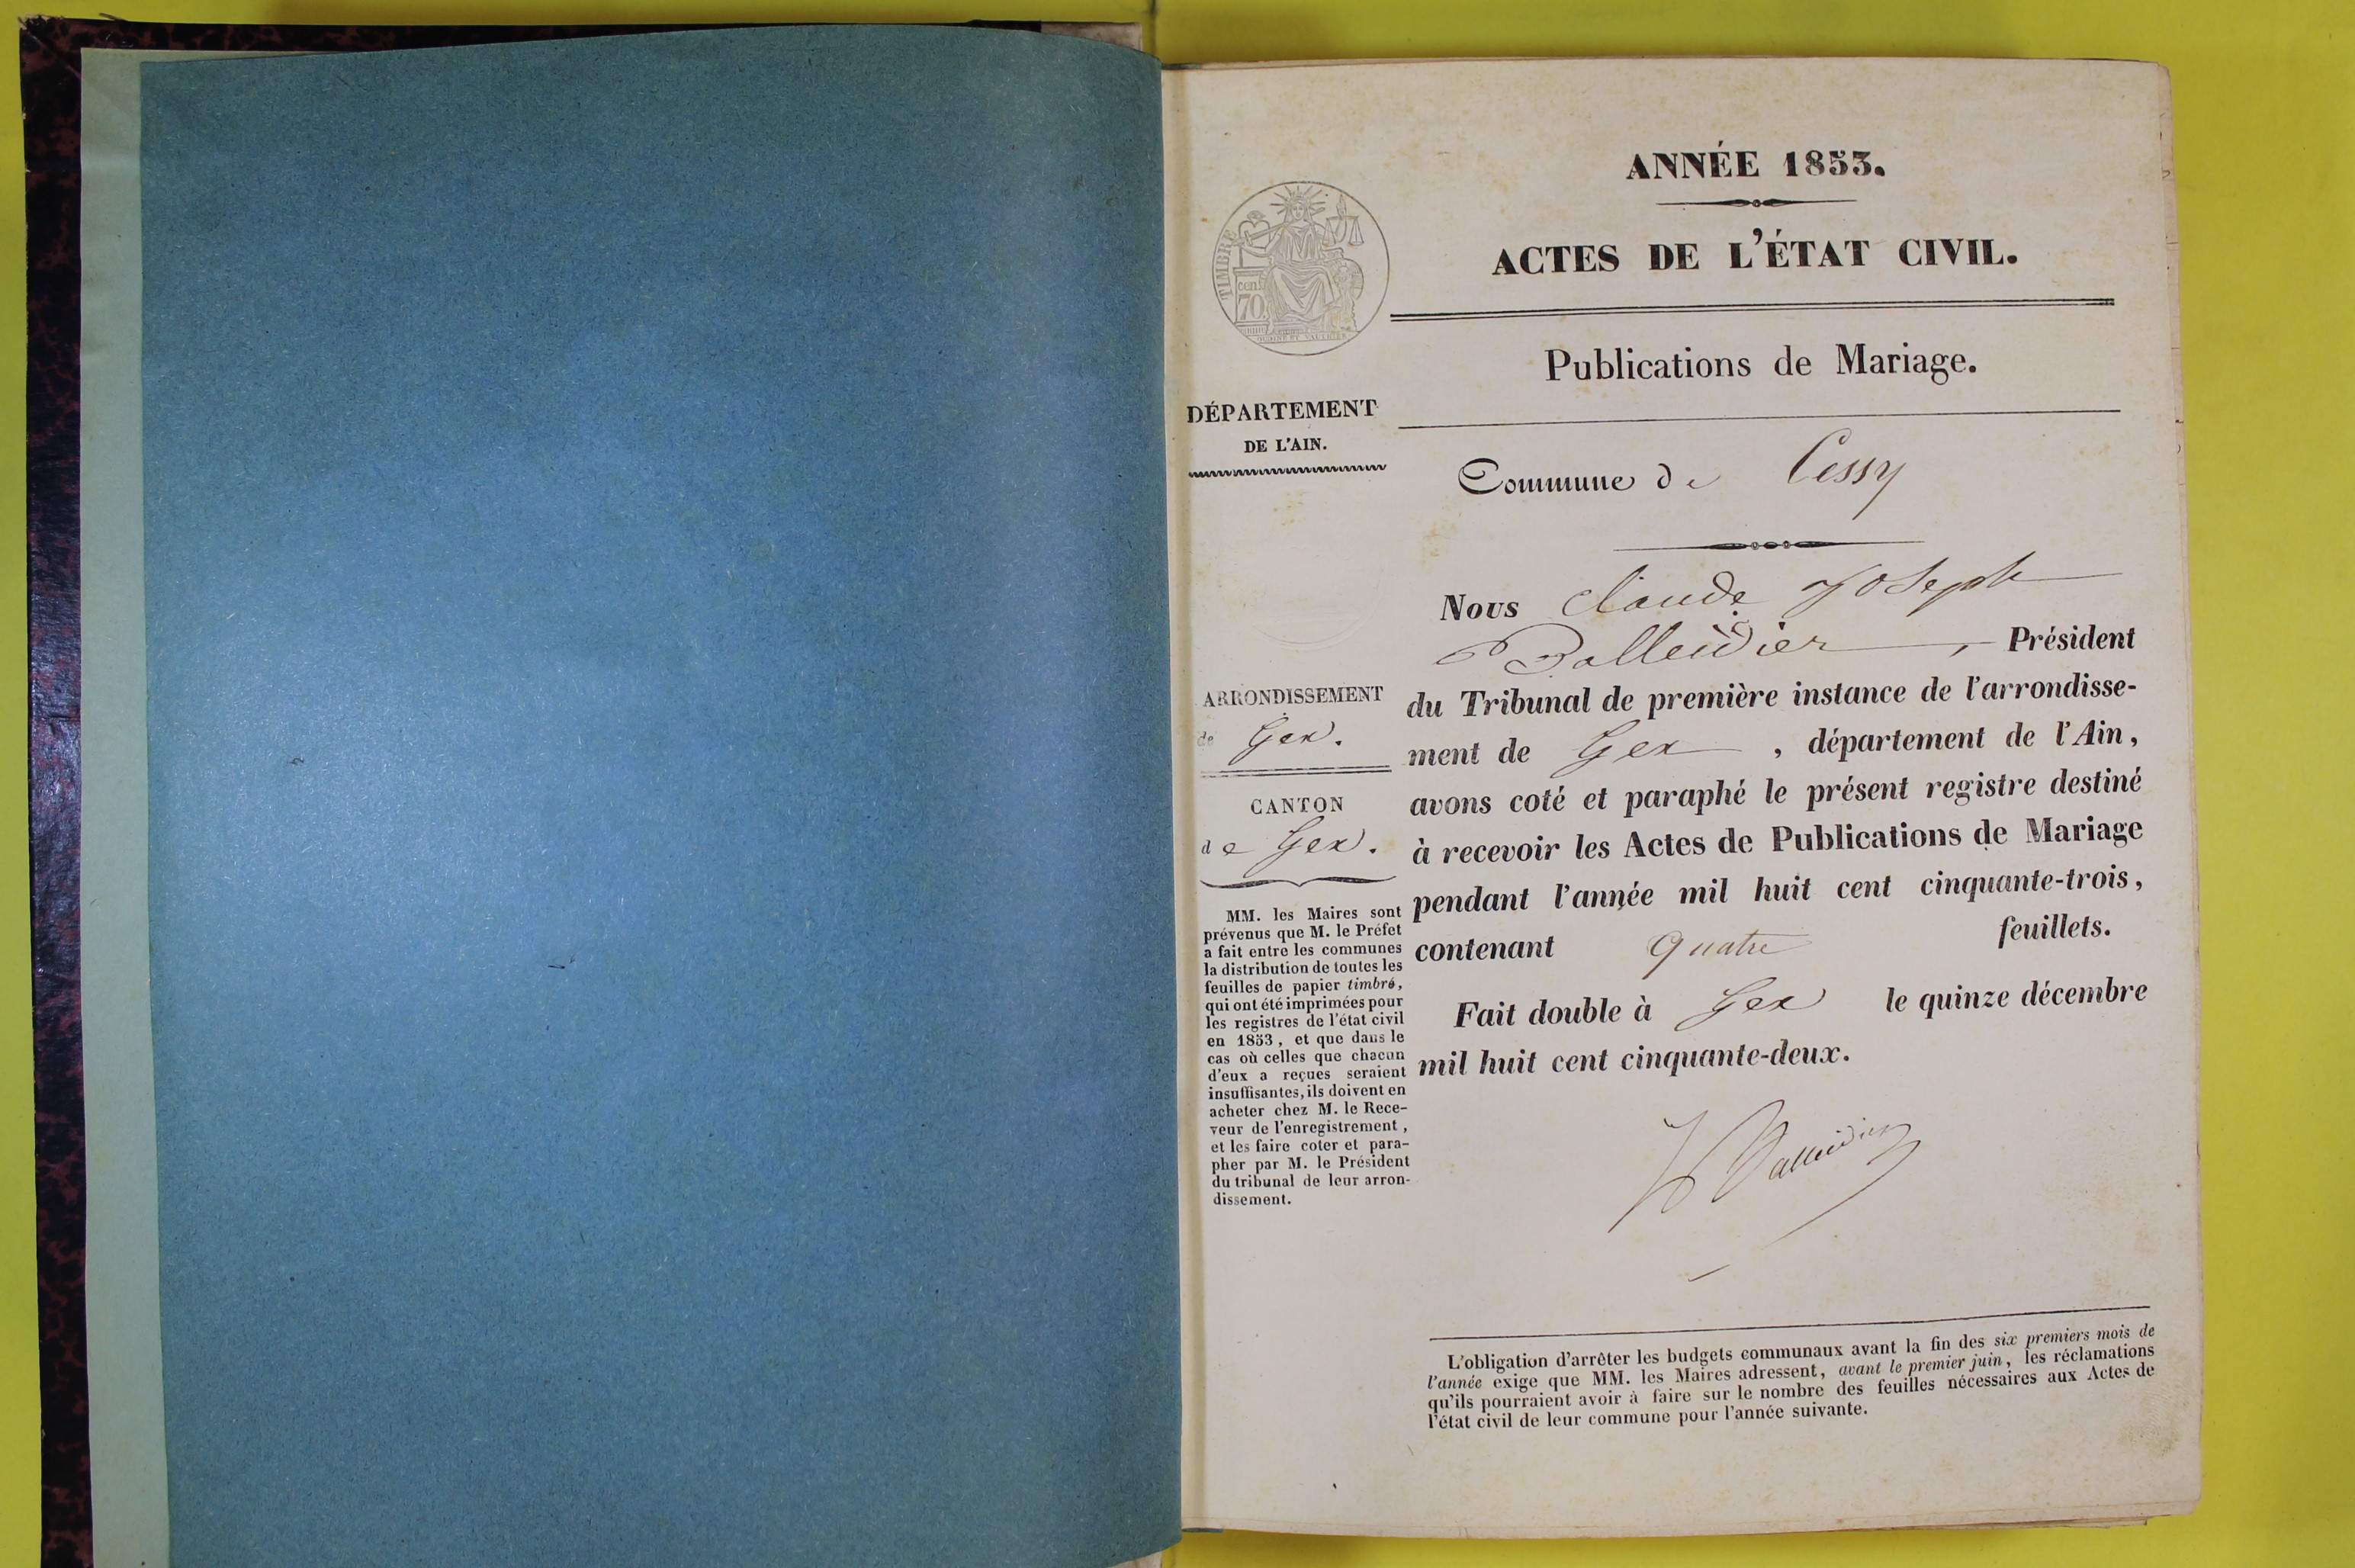 ANNÉE 1853.
ACTES DE L'ÉTAT CIVIL.
Publications de Mariage.
TIMBRE
cent
70
DÉPARTEMENT
DE L'AIN.
Commune de Cessy
Nous Claude Joseph
Balleidier, Président
du Tribunal de première instance de l'arrondisse-
ment de Gex, département de l'Ain,
avons coté et paraphé le présent registre destiné
à recevoir les Actes de Publications de Mariage
pendant l'année mil huit cent cinquante-trois,
contenant Quatre feuillets.
Fait double à Gex le quinze décembre
mil huit cent cinquante-deux.
Balleidier
ARRONDISSEMENT
de Gex.
CANTON
de Gex.
MM. les Maires sont
prévenus que M. le Préfet
a fait entre les communes
la distribution de toutes les
feuilles de papier timbré,
qui ont été imprimées pour
les registres de l'état civil
en 1853, et que dans le
cas où celles que chacun
d'eux a reçues seraient
insuffisantes, ils doivent en
acheter chez M. le Rece-
veur de l'enregistrement,
et les faire coter et para-
pher par M. le Président
du tribunal de leur arron-
dissement.
L'obligation d'arrêter les budgets communaux avant la fin des six premiers mois de
l'année exige que MM. les Maires adressent, avant le premier juin, les réclamations
qu'ils pourraient avoir à faire sur le nombre des feuilles nécessaires aux Actes de
l'état civil de leur commune pour l'année suivante.